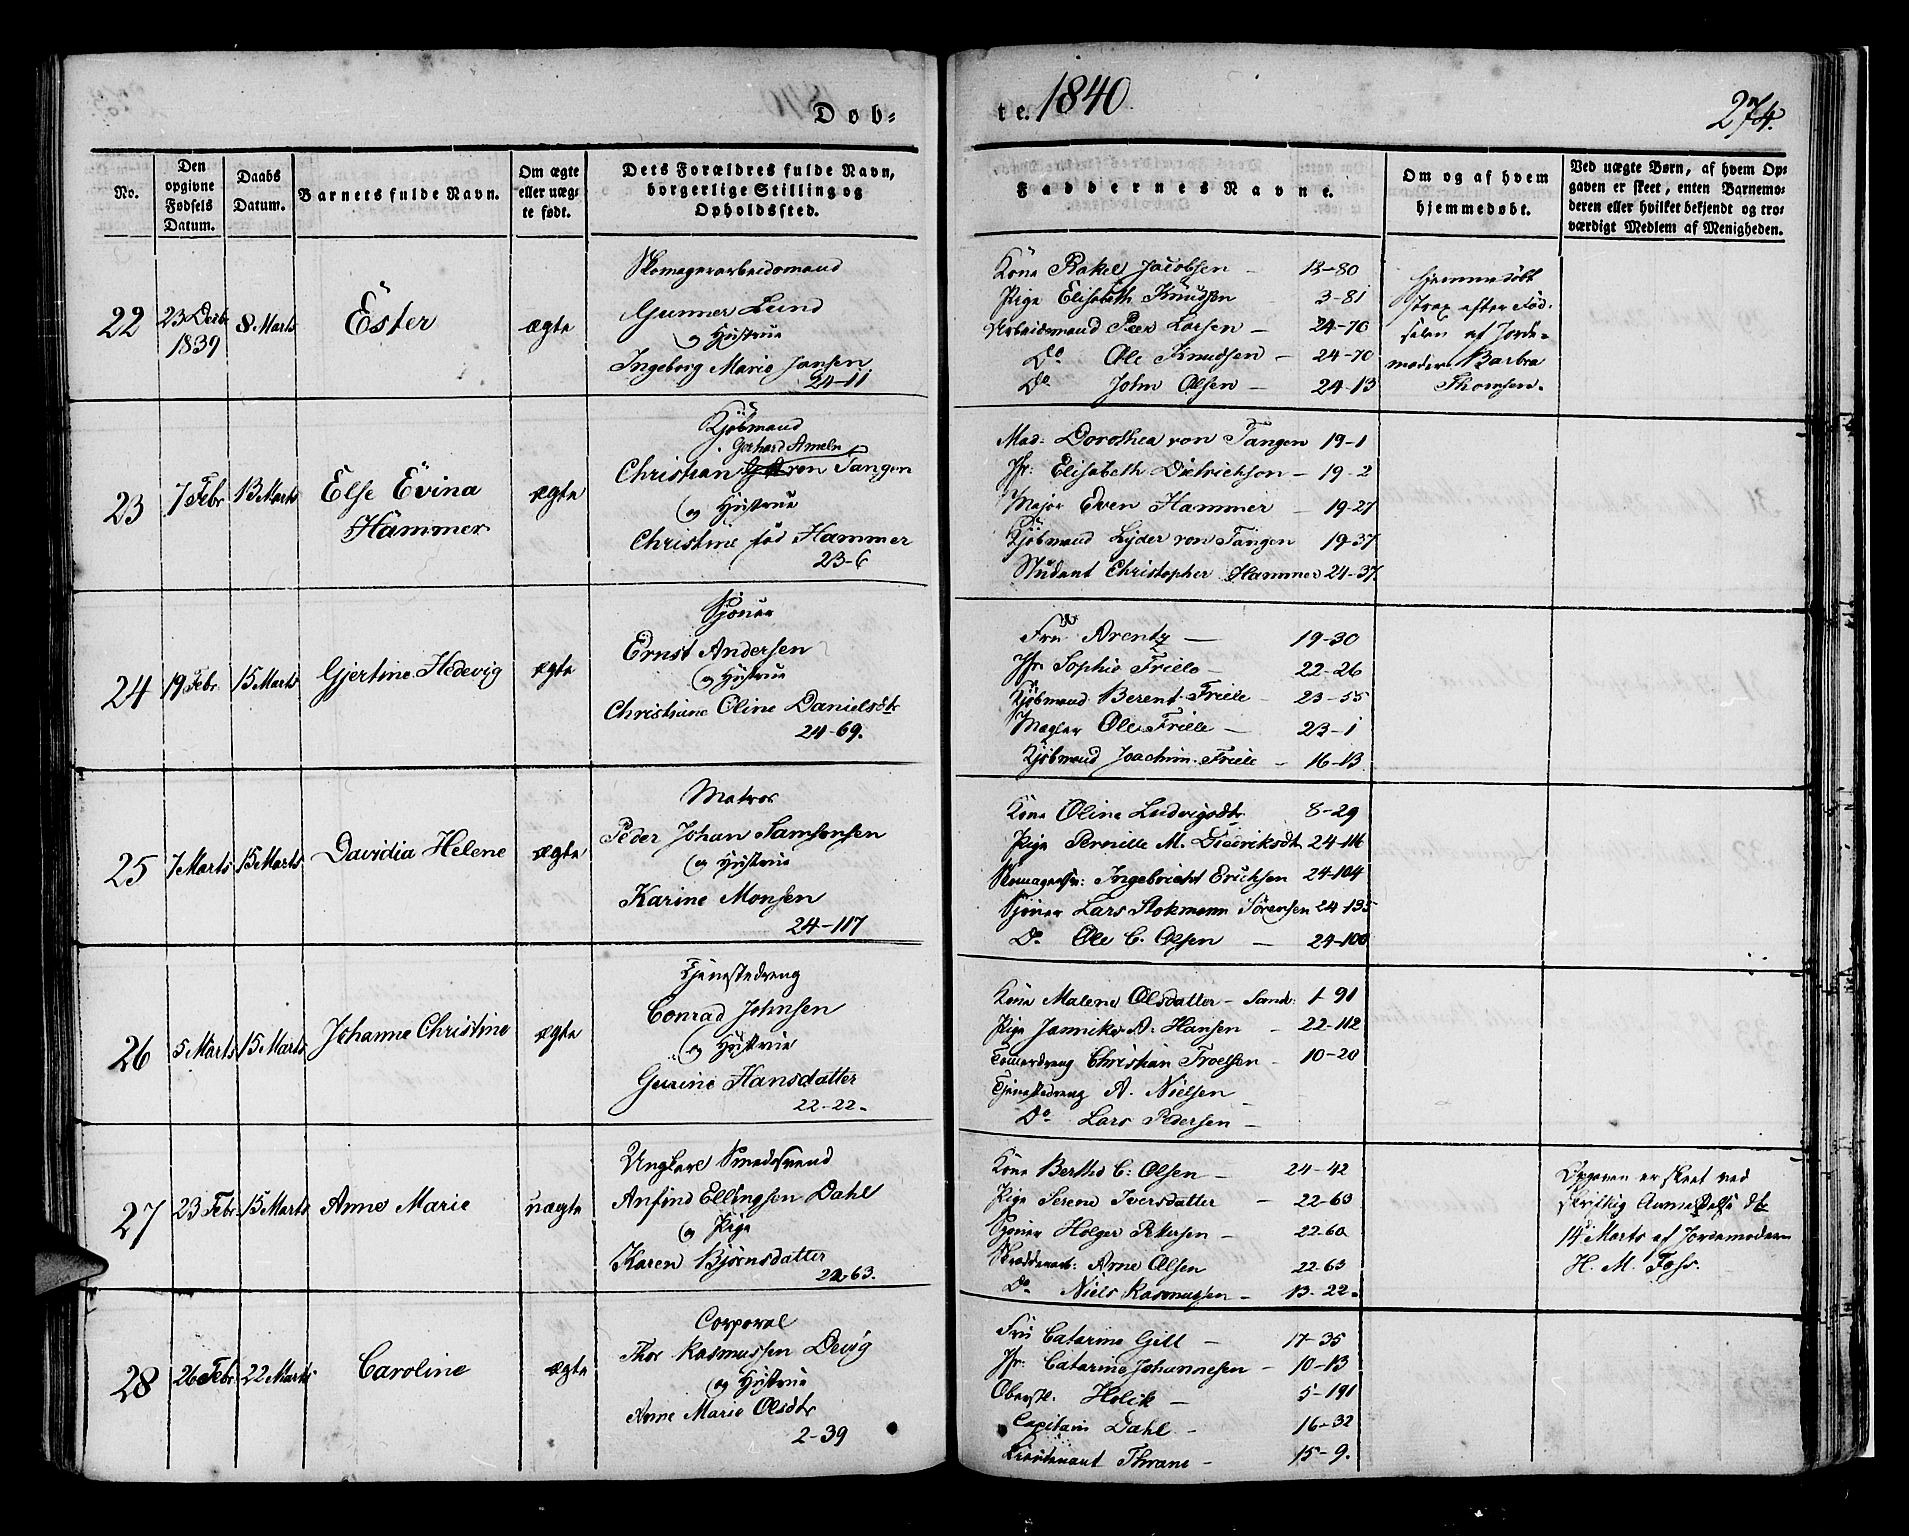 Døb-
te. 1840
274.
No.
Den opgivne Fødsels Datum.
Daabs Datum.
Barnets fulde Navn.
Om ægte eller uægte født.
Dets Forældres fulde Navn, borgerlige Stilling og Opholdssted.
Faddernes Navne.
Om og af hvem hjemmedøbt.
Ved uægte Børn, af hvem Opgaven er skeet, enten Barnemoderen eller hvilket bekjendt og troværdigt Medlem af Menigheden.
22
23 Decbr 1839
8 Marts
Ester
ægte
Skomagerarbeidsmand
Gunner Lund
og Hustrue
Ingeborg Marie Jansen
24-11
Kone Rakel Jacobsen - 13-80
Pige Elisabeth Knudsen 3-81
Arbeidsmand Peer Larsen - 24-70
Do Ole Knudsen - 24-70
Do John Olsen - 24-13
Hjemmedøbt
strax efter Fød-
selen af Jorde-
moder Barbra
Thomsen.
23
7 Febr
13 Marts
Else Evina
Hammer
ægte
Kjøbmand
Gerhard Ameln
Christian von Tangen
og Hustrue
Christine fød Hammer
23-6
Mad: Dorothea von Tangen 19-1
Jfr: Elisabeth Dietrichson - 19-2
Major Even Hammer - 19-27
Kjøbmand Lyder von Tangen 19-37
Student Christopher Hammer 24-37.
24
19 Febr
15 Marts
Gjertine Hedevig
ægte
Skjöner
Ernst Andersen
og Hustrue
Christiane Oline Danielsdtr
24-69.
Fru Arentz - 19-30
Jfr Sophie Friele - 22-26
Kjøbmand Berent Friele - 23-55
Mægler Ole Friele - 23-1
Kjøbmand Joachim Friele - 16-13
25
7 Marts
15 Marts
Davidia Helene
ægte
Matros
Peder Johan Samsonsen
og Hustrue
Karine Monsen
24-117
Kone Oline Ludvigsdtr 8-29
Pige Pernille M. Didriksdtr 24-116
Skomagersv: Ingebricht Erichsen 24-104
Sjöner Lars Stokmann Sørensen 24-135
Do Ole C. Olsen - 24-100
26
5 Marts
15 Marts
Johanne Christine
ægte
Tjenestedreng
Conrad Johnsen
og Hustrue
Gurine Hansdatter
22-22.
Kone Malene Olsdatter - Sand: 1-91
Pige Jannike A. Hansen - 22-112
Tømmerdreng Christian Troelsen - 10-20
Tjenestedreng A. Nielsen -
Do Lars Pedersen -
27
23 Febr
15 Marts
Anne Marie
uægte
Ungkarl Smedsvend
Anfind Ellingsen Dahl
og Pige
Karen Bjørnsdatter
22-63.
Kone Berthe C: Olsen - 24-42
Pige Serene Iversdatter - 22-63
Sjöner Holger Petersen - 22-60
Skrædersv: Arne Olsen 22-63
Do Niels Rasmussen - 13-22.
Opgaven er skeet ved
Skriftlig Anmeldelse dt
14 Marts af Jordemoderen
H. M. Foss.
28
26 Febr
22 Marts
Caroline
ægte
Corporal
Thor Rasmussen Devig
og Hustrue
Anne Marie Olsdtr
2-39
Fru Catarine Gill - 17-35
Jfr: Catarine Johannesen - 10-13
Oberstl: Holck - 5-191
Capitain Dahl - 16-32
Lieutenant Thrane - 15-9.